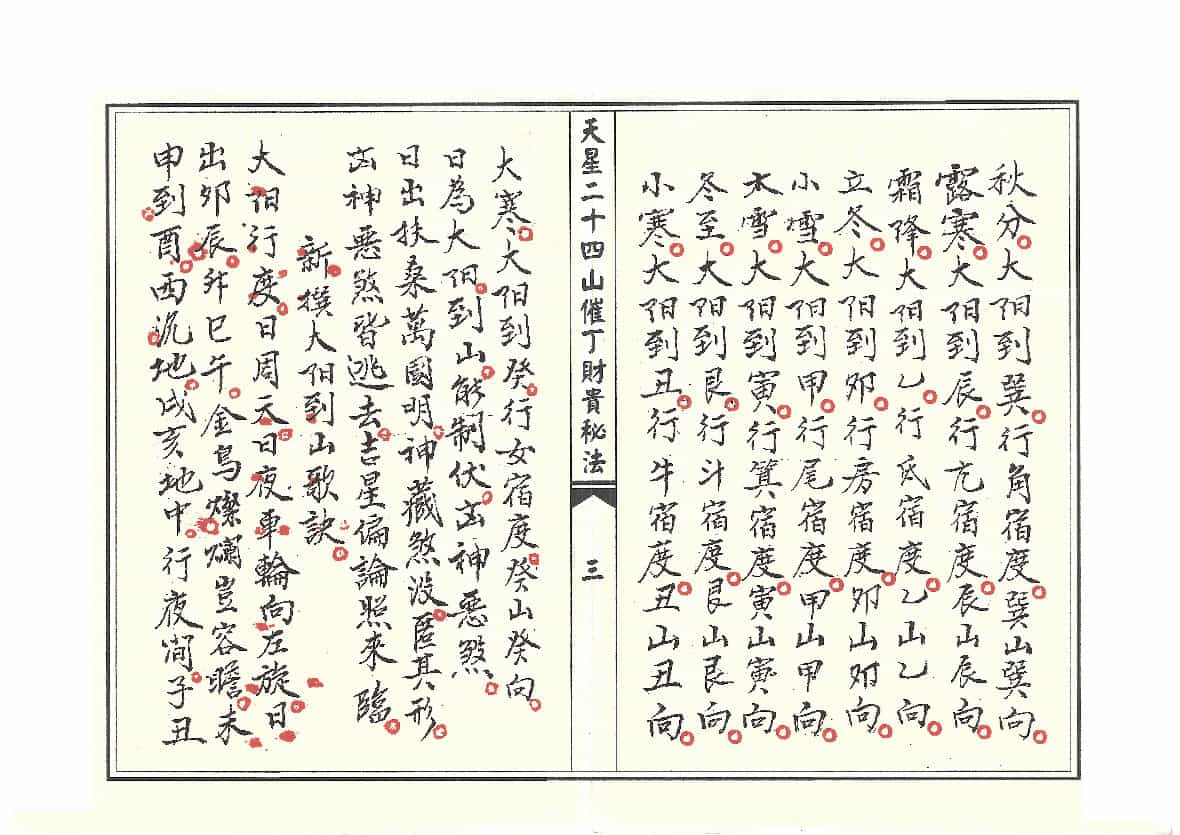 秋分大阳到巽行角宿度巽山巽向
露寒大阳到辰行亢宿度辰山辰向
霜降大阳到乙行氐宿度乙山乙向
立冬大阳到夘行房宿度夘山夘向
小雪大阳到甲行尾宿度甲山甲向
大雪大阳到寅行箕宿度寅山寅向
冬至大阳到艮行斗宿度艮山艮向
小寒大阳到丑行牛宿度丑山丑向
天星二十四山催丁財貴秘法
三
大寒大阳到癸行女宿度癸山癸向
日為大阳到山能制伏凶神惡煞
日出扶桑萬國明神藏煞没匿其形
凶神惡煞皆逃去吉星偏論照來臨
新撰大阳到山歌訣
大阳行度日周天日夜車輪向左旋日
出夘辰升巳午金烏燦爛豈容瞻未
申到酉西沉地戌亥地中行夜间子丑